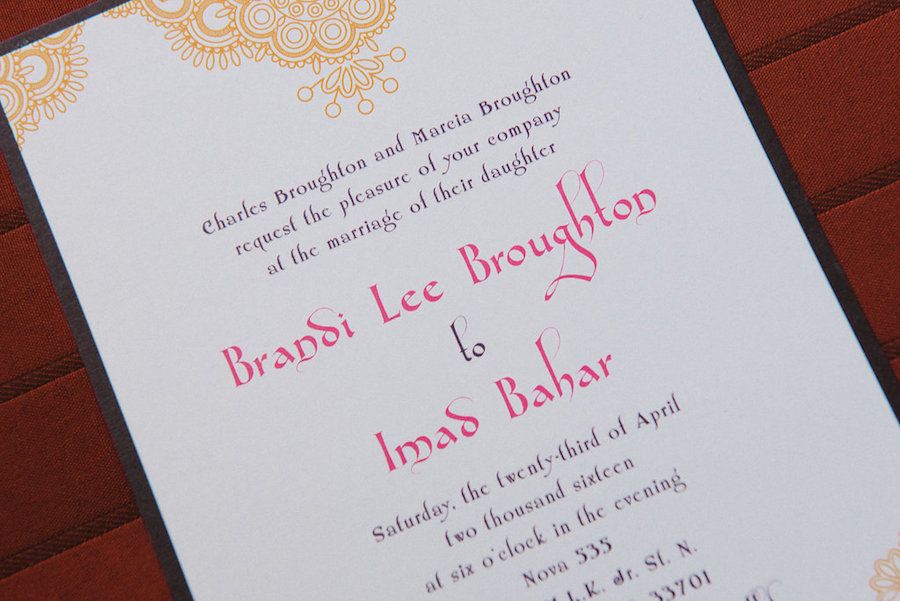 Charles Broughton and Marcia Broughton
request the pleasure of your company
at the marriage of their daughter
Brandi Lee Broughton
to
Imad Bahar
Saturday, the twenty-third of April
two thousand sixteen
at six o'clock in the evening
Nova 535
Jr. St. N.
33701